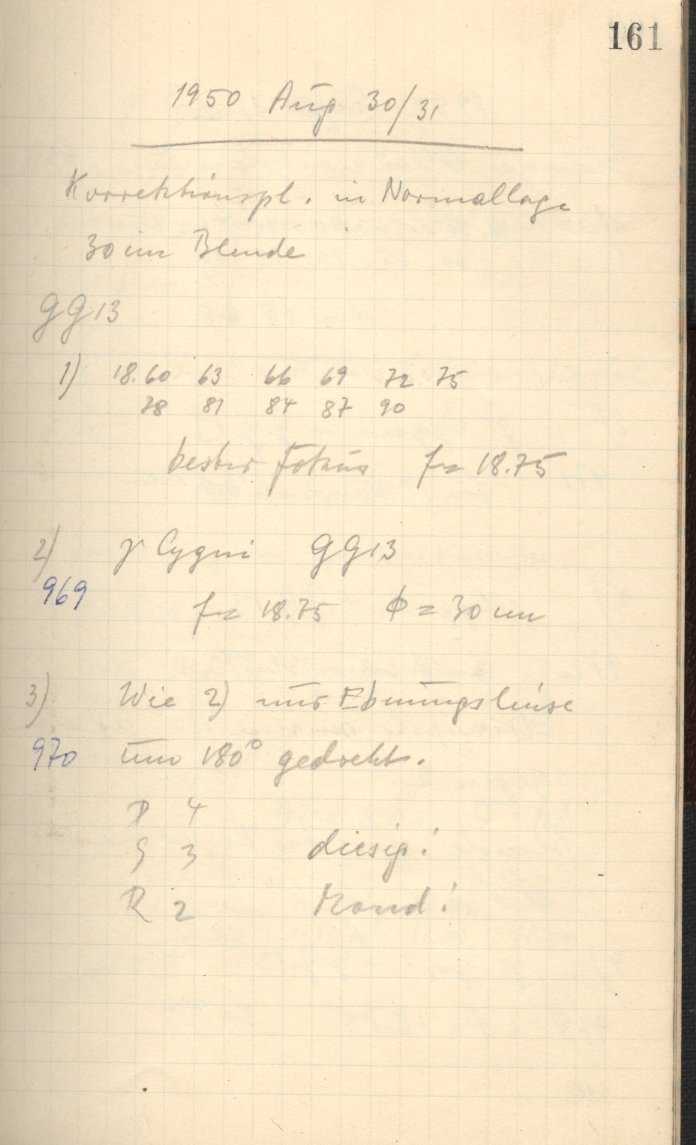 161
1950 Aug 30/31
Korrektionspl. in Normallage
30 cm Blende
GG13
1) 18.60 63 66 69 72 75
78 81 84 87 90
bester Fokus f = 18.75
2) γ Cygni GG13
969 f = 18.75 Φ = 30 cm
3) Wie 2) nur Ebnungslinse
970 um 180° gedreht.
D 4
S 3 diesig!
R 2 Mond!